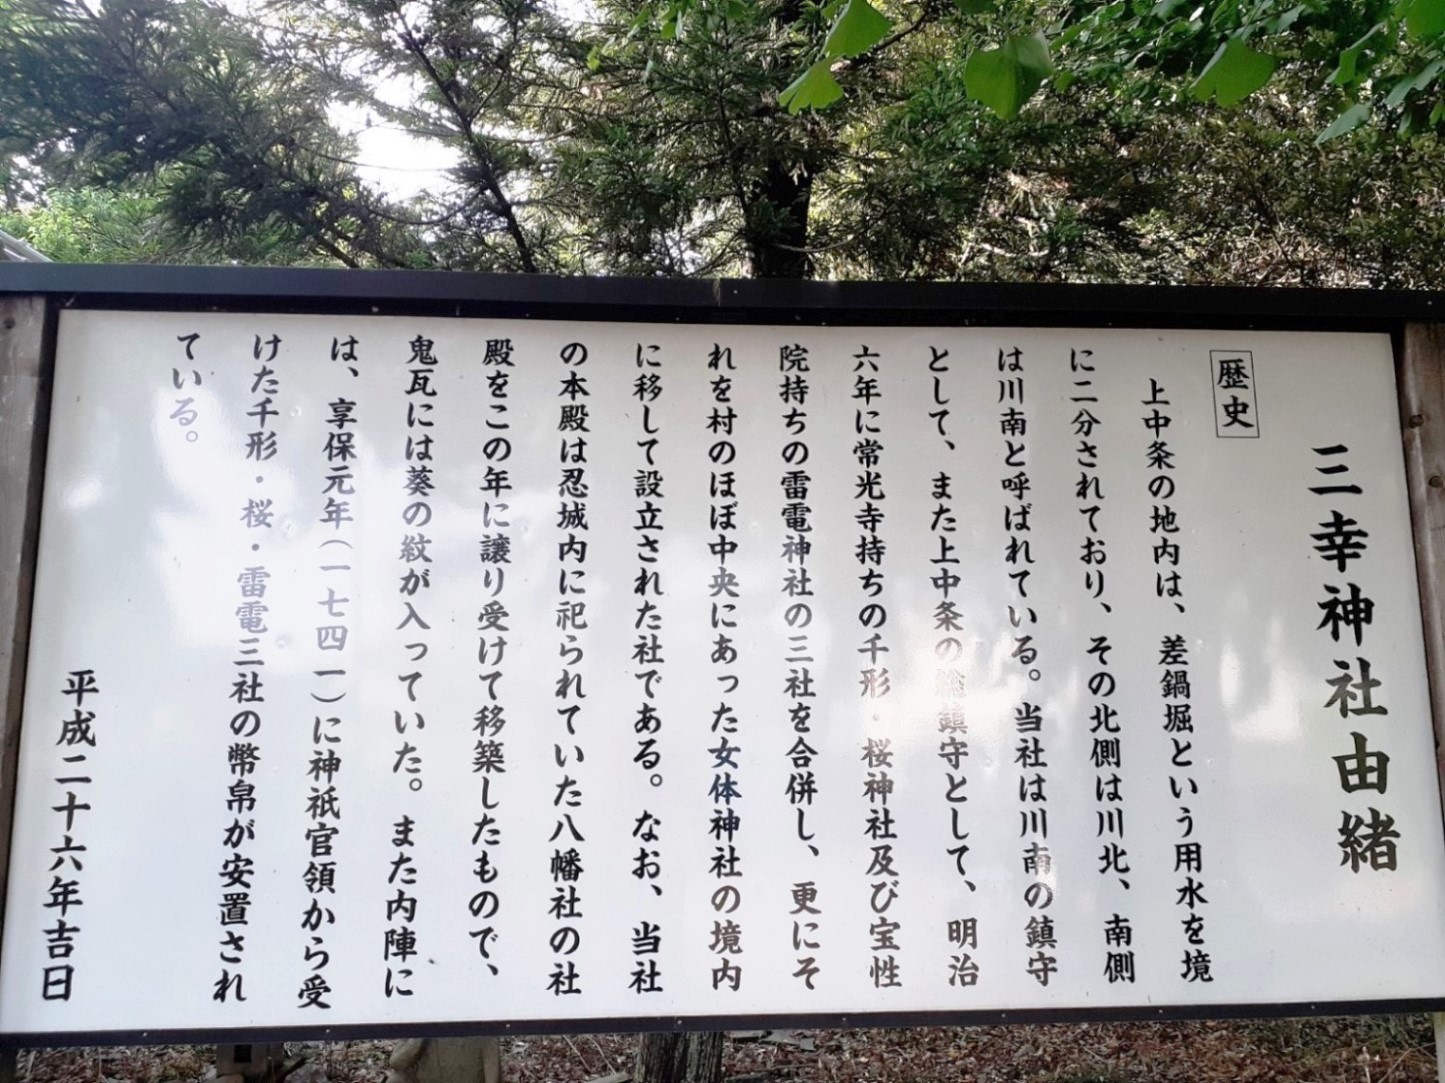 三幸神社由緒
歴史
上中条の地内は、差鍋堀という用水を境
に二分されており、その北側は川北、南側
は川南と呼ばれている。当社は川南の鎮守
として、また上中条の総鎮守として、明治
六年に常光寺持ちの千形・桜神社及び宝性
院持ちの雷電神社の三社を合併し、更にそ
れを村のほぼ中央にあった女体神社の境内
に移して設立された社である。なお、当社
の本殿は忍城内に祀られていた八幡社の社
殿をこの年に譲り受けて移築したもので、
鬼瓦には葵の紋が入っていた。また内陣に
は、享保元年（一七四一）に神祇官領から受
けた千形・桜・雷電三社の幣帛が安置され
ている。
平成二十六年吉日